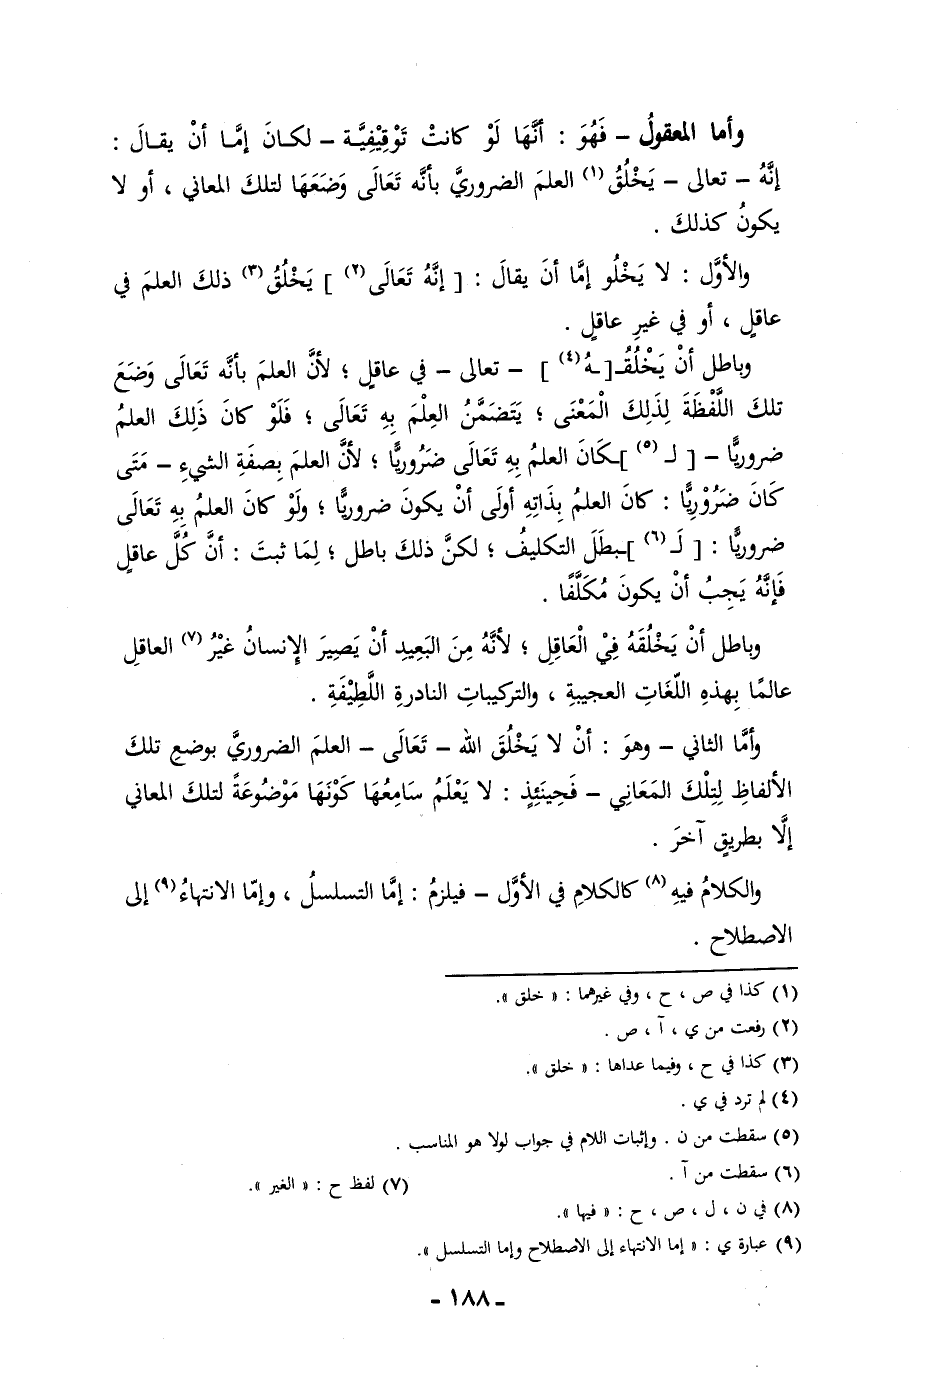 وأما المعقولُ – فَهُوَ : أنَّهَا لَوْ كانتْ تَوْقِيْفِيَّة – لكـانَ إمَّـا أنْ يقـالَ :
إنَّهُ – تعالى – يَخْلُقُ (١) العلمَ الضروريَّ بأنَّه تَعَالَى وَضَعَهَا لتلكَ المعاني ، أو لا
يكونُ كذلكَ .
والأوَّل : لا يَخْلُو إمَّا أن يقالَ : [ إنَّهُ تَعَالَى (٢) ] يَخْلُقُ (٣) ذلكَ العلمَ في
عاقلٍ ، أو في غيرِ عاقلٍ .
وباطل أنْ يَخْلُقُـ[ـهُ (٤) ] – تعالى – في عاقلٍ ؛ لأنَّ العلمَ بأنه تَعَالَى وَضَعَ
تلكَ اللَّفْظَةَ لِذَلِكَ الْمَعْنَى ؛ يَتَضَمَّنُ العِلْمَ بِهِ تَعَالَى ؛ فَلَوْ كانَ ذَلِكَ العلمُ
ضروريًّا – [ لـ (٥) ]ـكَانَ العلمُ بِهِ تَعَالَى ضَرُوريًّا ؛ لأنَّ العلمَ بِصفَةِ الشيءِ – مَتَى
كَانَ ضَرُوْرِيًّا : كانَ العلمُ بِذَاتِهِ أولَى أنْ يكونَ ضروريًّا ؛ ولَوْ كانَ العلمُ بِهِ تَعَالَى
ضروريًّا : [ لَـ (٦) ]ـبطَلَ التكليفُ ؛ لكنَّ ذلكَ باطل ؛ لِمَا ثبتَ : أنَّ كُلَّ عاقلٍ
فَإنَّهُ يَجِبُ أنْ يكونَ مُكَلَّفًا .
وباطل أنْ يَخْلُقَهُ فِيْ الْعَاقِلِ ؛ لأنَّهُ مِنَ البَعِيدِ أنْ يَصِيرَ الإنسانُ غيْرُ (٧) العاقلِ
عالمًا بِهذهِ اللّغَاتِ العجيبةِ ، والتركيباتِ النادرةِ اللَّطِيْفَةِ .
وأمَّا الثاني – وهوَ : أنْ لا يَخْلُقَ الله – تَعَالَى – العلمَ الضروريَّ بوضعِ تلكَ
الألفاظِ لِتِلْكَ المَعَانِي – فَحِينَئِذٍ : لا يَعْلَمُ سَامِعُهَا كَوْنَهَا مَوْضُوعَةً لتلكَ المعاني
إلَّا بطريقٍ آخرَ .
والكلامُ فيهِ (٨) كالكلامِ في الأوَّل – فيلزمُ : إمَّا التسلسلُ ، وإمّا الانتهاءُ (٩) إلى
الاصطلاح .
(١) كذا في ص ، ح ، وفي غيرهما : « خلق ».
(٢) رفعت من ي ، آ ، ص .
(٣) كذا في ح ، وفيما عداها : « خلق ».
(٤) لم ترد في ي .
(٥) سقطت من ن . وإثبات اللام في جواب لولا هو المناسب .
(٦) سقطت من آ .
(٧) لفظ ح : « الغير ».
(٨) في ن ، ل ، ص ، ح : « فيها ».
(٩) عبارة ي : « إما الانتهاء إلى الاصطلاح وإما التسلسل ».
– ١٨٨ –